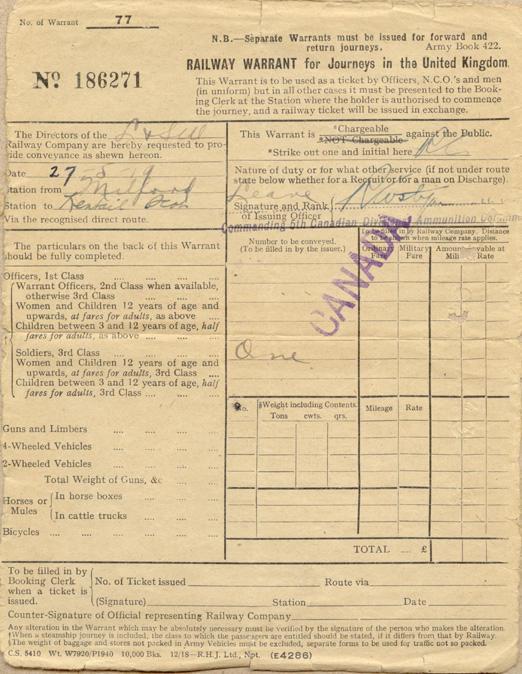 No. of Warrant 77
N.B.—Separate Warrants must be issued for forward and
return journeys. Army Book 422.
No 186271
RAILWAY WARRANT for Journeys in the United Kingdom.
This Warrant is to be used as a ticket by Officers, N.C.O.'s and men
(in uniform) but in all other cases it must be presented to the Book-
ing Clerk at the Station where the holder is authorised to commence
the journey, and a railway ticket will be issued in exchange.
The Directors of the
Railway Company are hereby requested to pro-
vide conveyance as shewn hereon.
Date 27
Station from Milford
Station to
Via the recognised direct route.
This Warrant is *Chargeable *NOT Chargeable against the Public.
*Strike out one and initial here
Nature of duty or for what other service (if not under route
state below whether for a Recruit or for a man on Discharge).
Leave
Signature and Rank
of Issuing Officer
Commanding 5th Canadian Div Ammunition
CANADA
The particulars on the back of this Warrant
should be fully completed.
Number to be conveyed.
(To be filled in by the issuer.)
in by Railway Company. Distance
when mileage rate applies.
Fare
Military
Fare
Amount payable at
Rate
Officers, 1st Class
Warrant Officers, 2nd Class when available,
otherwise 3rd Class
Women and Children 12 years of age and
upwards, at fares for adults, as above
Children between 3 and 12 years of age, half
fares for adults, as above
Soldiers, 3rd Class One
Women and Children 12 years of age and
upwards, at fares for adults, 3rd Class
Children between 3 and 12 years of age, half
fares for adults, 3rd Class
No.
§Weight including Contents.
Tons cwts. qrs.
Mileage Rate
Guns and Limbers
4-Wheeled Vehicles
2-Wheeled Vehicles
Total Weight of Guns, &c
Horses or
Mules
In horse boxes
In cattle trucks
Bicycles
TOTAL £
To be filled in by
Booking Clerk
when a ticket is
issued.
No. of Ticket issued Route via
(Signature) Station Date
Counter-Signature of Official representing Railway Company
Any alteration in the Warrant which may be absolutely necessary must be verified by the signature of the person who makes the alteration.
†When a steamship journey is included, the class to which the passengers are entitled should be stated, if it differs from that by Railway.
§The weight of baggage and stores not packed in Army Vehicles must be excluded, separate forms to be used for traffic not so packed.
C.S. 5410 Wt. W7920/P1940 10,000 Bks. 12/18—R.H.J. Ltd., Npt. (E4286)